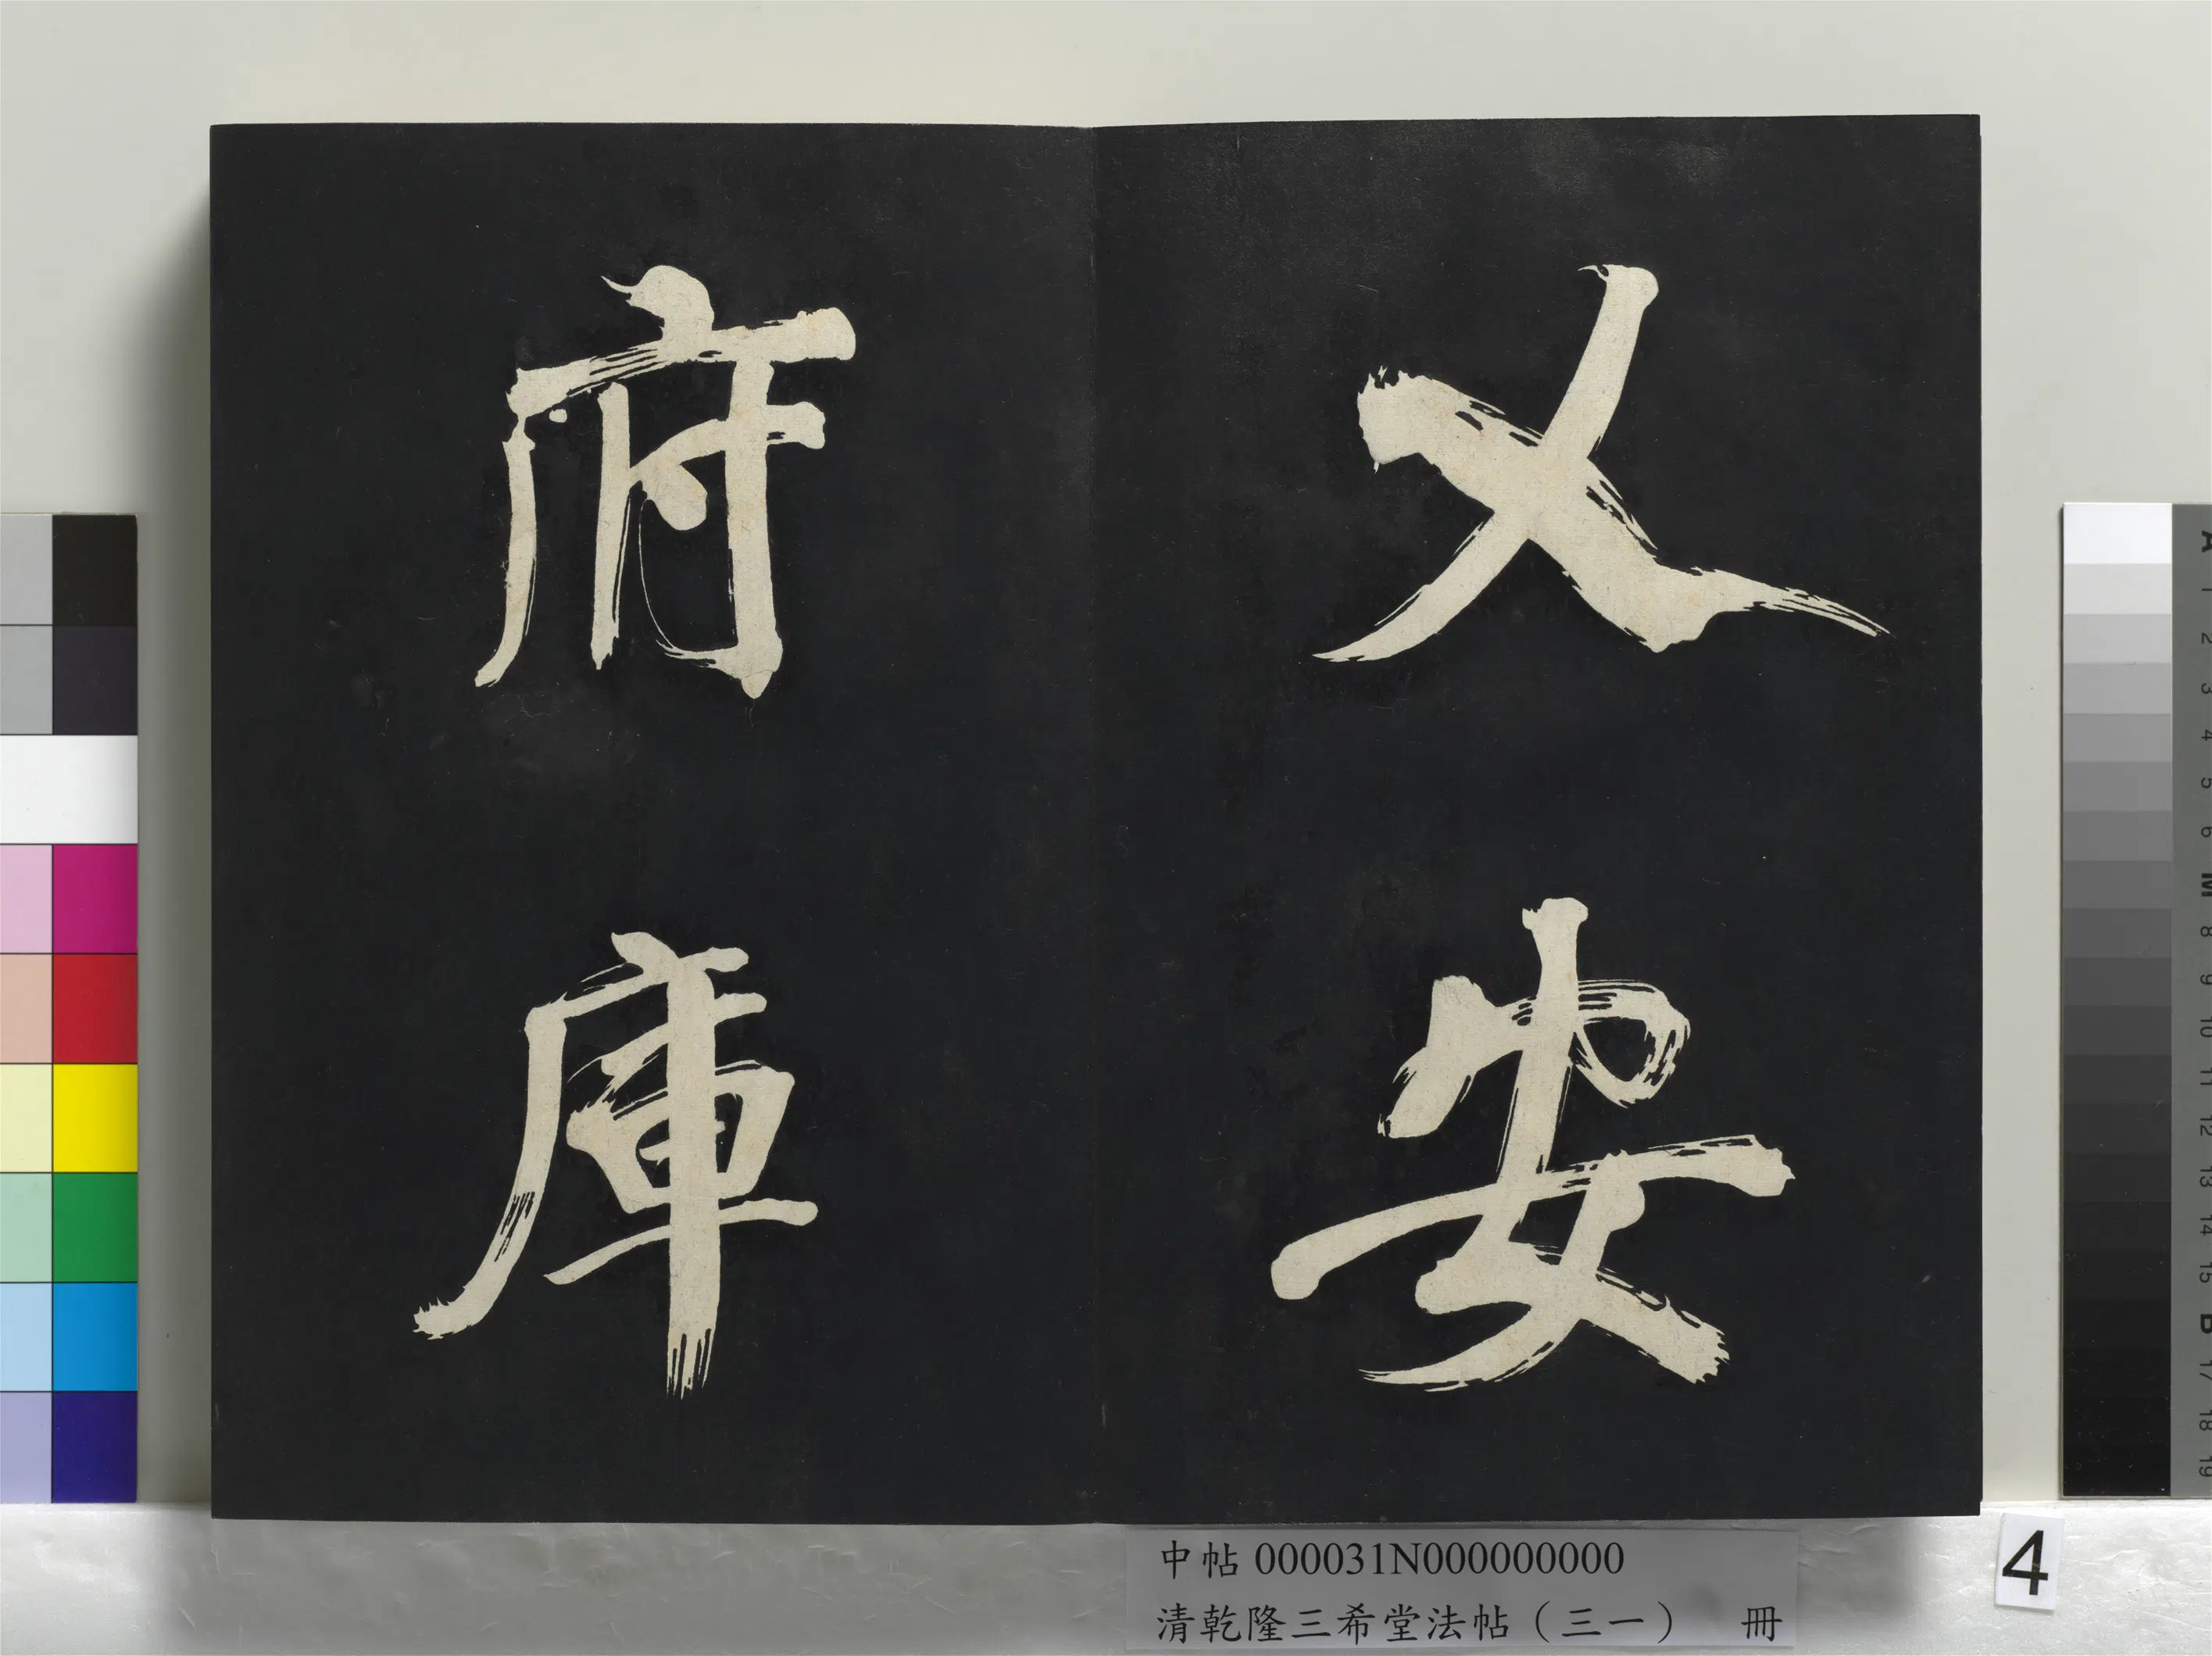 乂安
府庫
中帖 000031N000000000
清乾隆三希堂法帖（三一） 冊
4
A 1 2 3 4 5 6 M 8 9 10 11 12 13 14 15 B 17 18 19